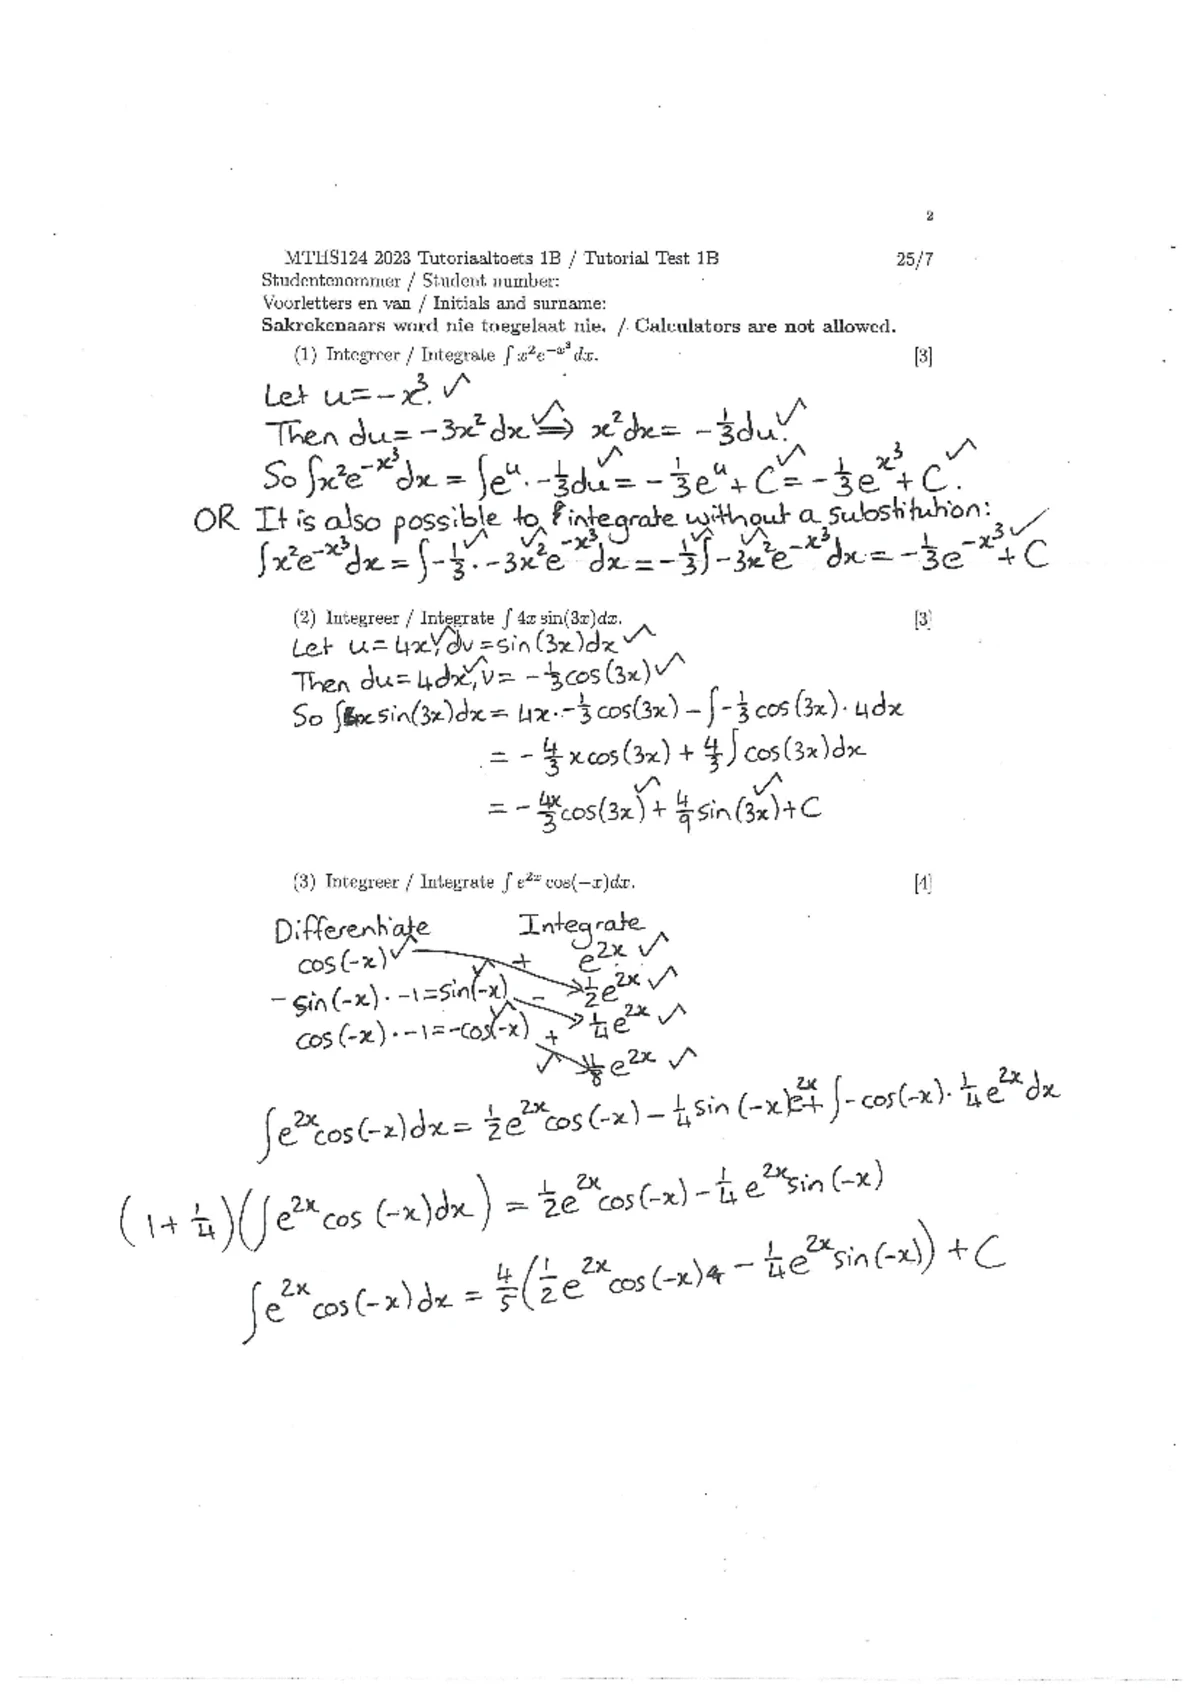 2
MTHS124 2023 Tutoriaaltoets 1B / Tutorial Test 1B 25/7
Studentenommer / Student number:
Voorletters en van / Initials and surname:
Sakrekenaars word nie toegelaat nie. / Calculators are not allowed.
(1) Integreer / Integrate ∫ x²e^{-x³} dx. [3]
Let u = -x³. ✓
Then du = -3x² dx ✓ ⟹ x²dx = -1/3 du. ✓
So ∫x²e^{-x³}dx = ∫e^u · -1/3 du ✓ = -1/3 e^u + C ✓ = -1/3 e^{x³} + C. ✓
OR It is also possible to integrate without a substitution:
∫x²e^{-x³}dx = ∫-1/3 ✓ · -3x² ✓ e^{-x³} dx = -1/3 ✓ ∫-3x² ✓ e^{-x³}dx = -1/3 e^{-x³} ✓ + C
(2) Integreer / Integrate ∫ 4x sin(3x)dx. [3]
Let u = 4x ✓, dv = sin(3x)dx ✓
Then du = 4dx ✓, v = -1/3 cos(3x) ✓
So ∫4x sin(3x)dx = 4x · -1/3 cos(3x) - ∫-1/3 cos(3x) · 4dx
= -4/3 x cos(3x) + 4/3 ∫cos(3x)dx
= -4x/3 cos(3x) ✓ + 4/9 sin(3x) ✓ + C
(3) Integreer / Integrate ∫ e^{2x} cos(-x)dx. [4]
Differentiate Integrate
cos(-x) ✓ + e^{2x} ✓
-sin(-x) · -1 = sin(-x) ✓ - 1/2 e^{2x} ✓
cos(-x) · -1 = -cos(-x) ✓ + 1/4 e^{2x} ✓
✓ 1/8 e^{2x} ✓
∫e^{2x}cos(-x)dx = 1/2 e^{2x}cos(-x) - 1/4 sin(-x)e^{2x} + ∫-cos(-x) · 1/4 e^{2x}dx
(1 + 1/4)(∫e^{2x}cos(-x)dx) = 1/2 e^{2x}cos(-x) - 1/4 e^{2x}sin(-x)
∫e^{2x}cos(-x)dx = 4/5(1/2 e^{2x}cos(-x) - 1/4 e^{2x}sin(-x)) + C